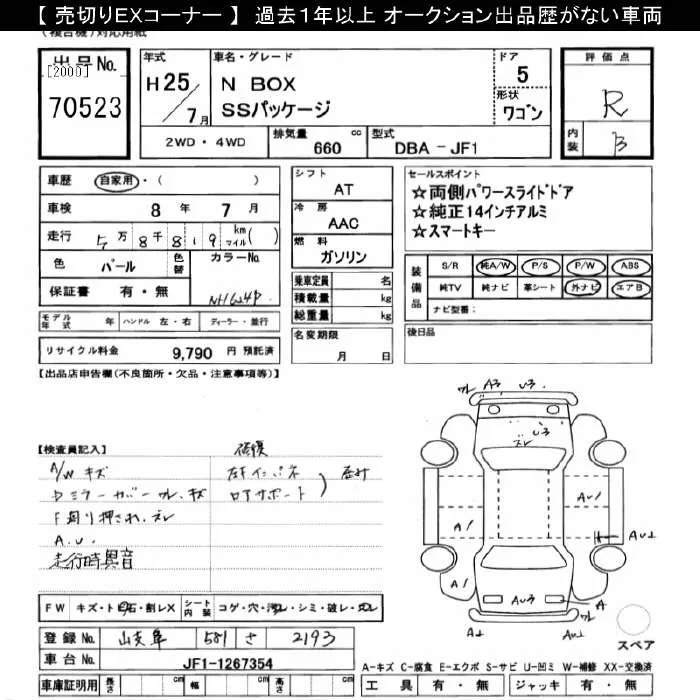 【 売切りEXコーナー 】 過去1年以上 オークション出品歴がない車両
(複合機)対応用紙
出品No.
[2000]
70523
年式
H25/7月
車名・グレード
N BOX
SSパッケージ
ドア
5
形状
ワゴン
評価点
R
内装
B
2WD・4WD
排気量 660 cc
型式 DBA-JF1
車歴 自家用・( )
車検 8年 7月
走行 5万8千8 1 9 km マイル( )
色 パール 色替 カラーNo.
NH624P
保証書 有・無
シフト
AT
冷房
AAC
燃料
ガソリン
乗車定員 名
積載量 kg
総重量 kg
セールスポイント
☆両側パワースライドドア
☆純正14インチアルミ
☆スマートキー
装備品
S/R 純A/W P/S P/W ABS
純TV 純ナビ 革シート 外ナビ エアB
ナビ型番:
モデル年式 年 ハンドル 左・右 ディーラー・並行
名変期限
月 日
後日品
リサイクル料金 9,790 円 預託済
【出品店申告欄(不良箇所・欠品・注意事項等)】
ワレ A3 U3.
U3
ズレ
【検査員記入】
修復
A/W キズ
左右インパネ
ロアサポート
ドミラーカバーワレ、キズ
F廻り押され、ズレ
A.U.
走行時異音
AU1
A1
AU1
A1
AU3
A
A1
A1
FW キズ・ト石・割レX シート内装 コゲ・穴・汚レ・シミ・破レ・スレ
登録No. 岐阜 581 さ 2193
車台No. JF1-1267354
スペア
A-キズ C-腐食 E-エクボ S-サビ U-凹ミ W-補修 XX-交換済
車庫証明用 長さ cm 幅 cm 高さ cm
工具 有・無 ジャッキ 有・無